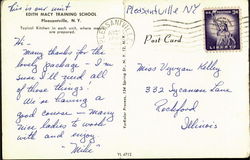 This is our unit
Pleasantville NY
EDITH MACY TRAINING SCHOOL
Pleasantville, N. Y.
Typical Kitchen in each unit, where meals
are prepared.
Post Card
LIBERTY
Hi -
Many thanks for the
lovely package - I'm
sure I'll need all
of those things!
We're having a
good course - Many
nice ladies to work
with and enjoy
"Mike"
Miss Kelley
332 Sycamore Lane
Rockford
Illinois